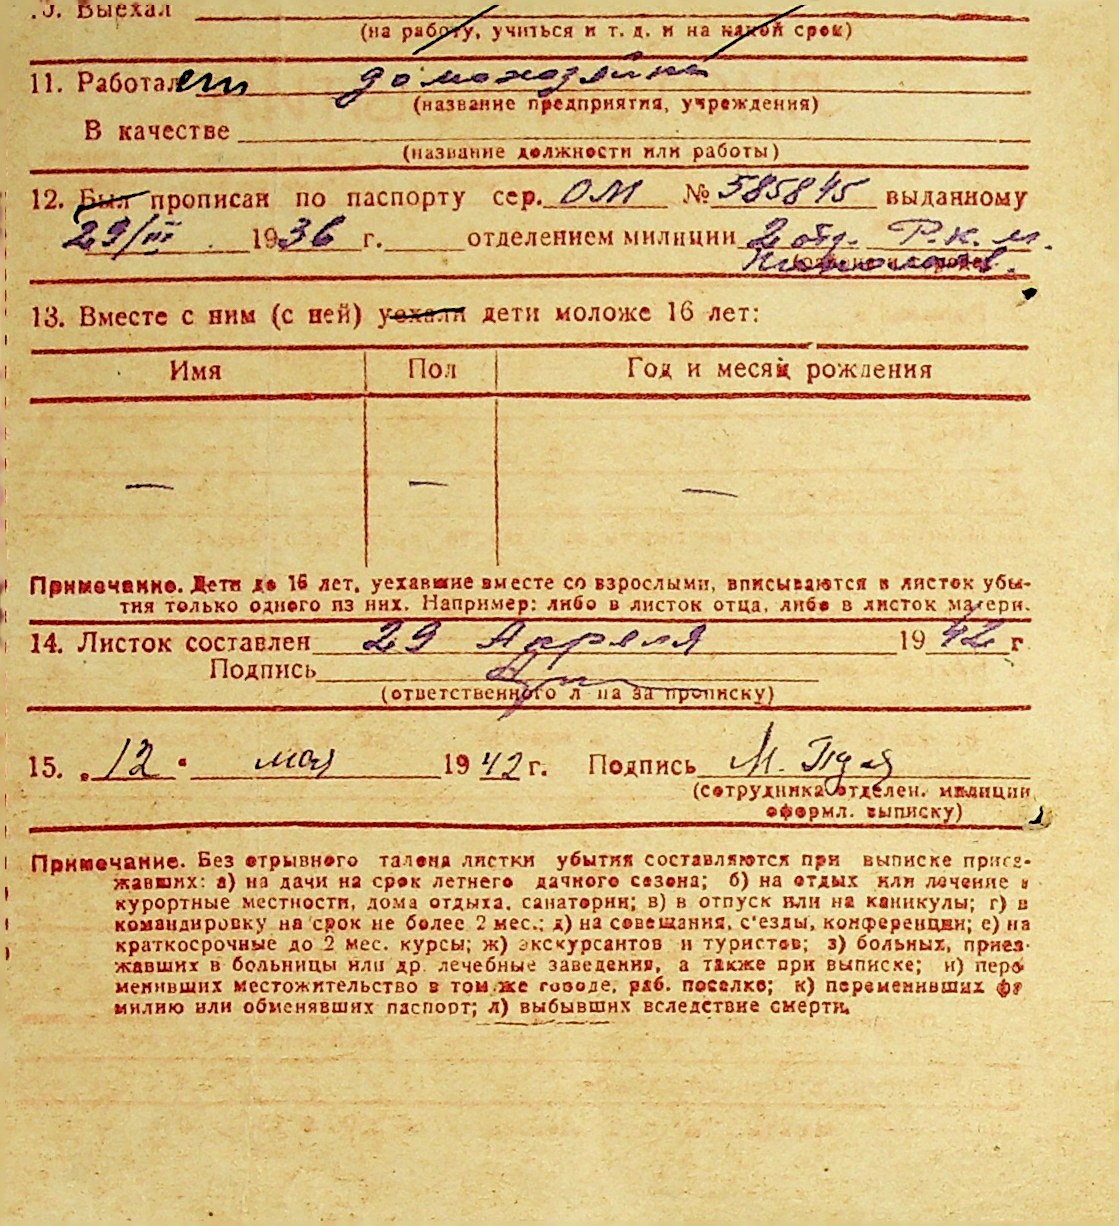 . Выехал
(на работу, учиться и т. д. и на какой срок)
11. Работает домохозяйка
(название предприятия, учреждения)
В качестве
(название должности или работы)
12. Был прописан по паспорту сер. ОМ № 585845 выданному
29/III 1936 г. отделением милиции 2 отд. Р.К.М.
13. Вместе с ним (с ней) уехали дети моложе 16 лет:
Имя Пол Год и месяц рождения
— — —
Примечание. Дети до 16 лет, уехавшие вместе со взрослыми, вписываются в листок убы-
тия только одного из них. Например: либо в листок отца, либо в листок матери.
14. Листок составлен 29 Апреля 1942 г
Подпись
(ответственного л ца за прописку)
15. „12" мая 1942 г. Подпись М.
(сотрудника отделен. милиции
оформл. выписку)
Примечание. Без отрывного талона листки убытия составляются при выписке приез-
жавших: а) на дачи на срок летнего дачного сезона; б) на отдых или лечение в
курортные местности, дома отдыха, санатории; в) в отпуск или на каникулы; г) в
командировку на срок не более 2 мес.; д) на совещания, с'езды, конференции; е) на
краткосрочные до 2 мес. курсы; ж) экскурсантов и туристов; з) больных, приез-
жавших в больницы или др. лечебные заведения, а также при выписке; и) пере
менивших местожительство в том же городе, раб. поселке; к) переменивших фа
милию или обменявших паспорт; л) выбывших вследствие смерти.